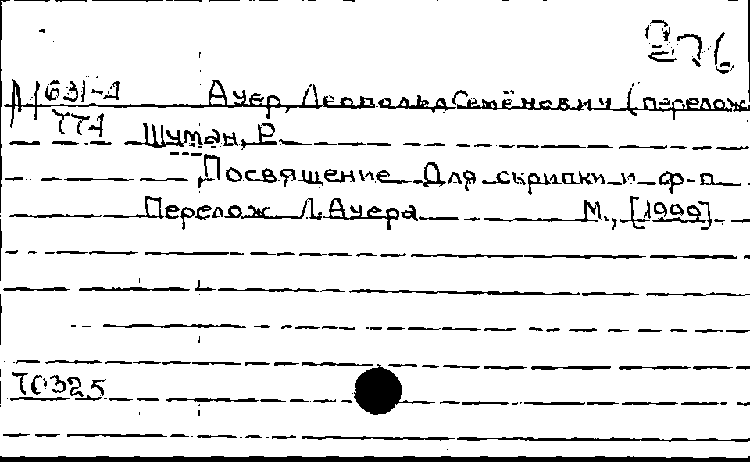 М 631-4 Ауер, Леопольд Семёнович (перелож
774 Шуман, Р.
Посвящение Для скрипки и ф-п
Перелож Л. Ауера М., [1999]
Т0325